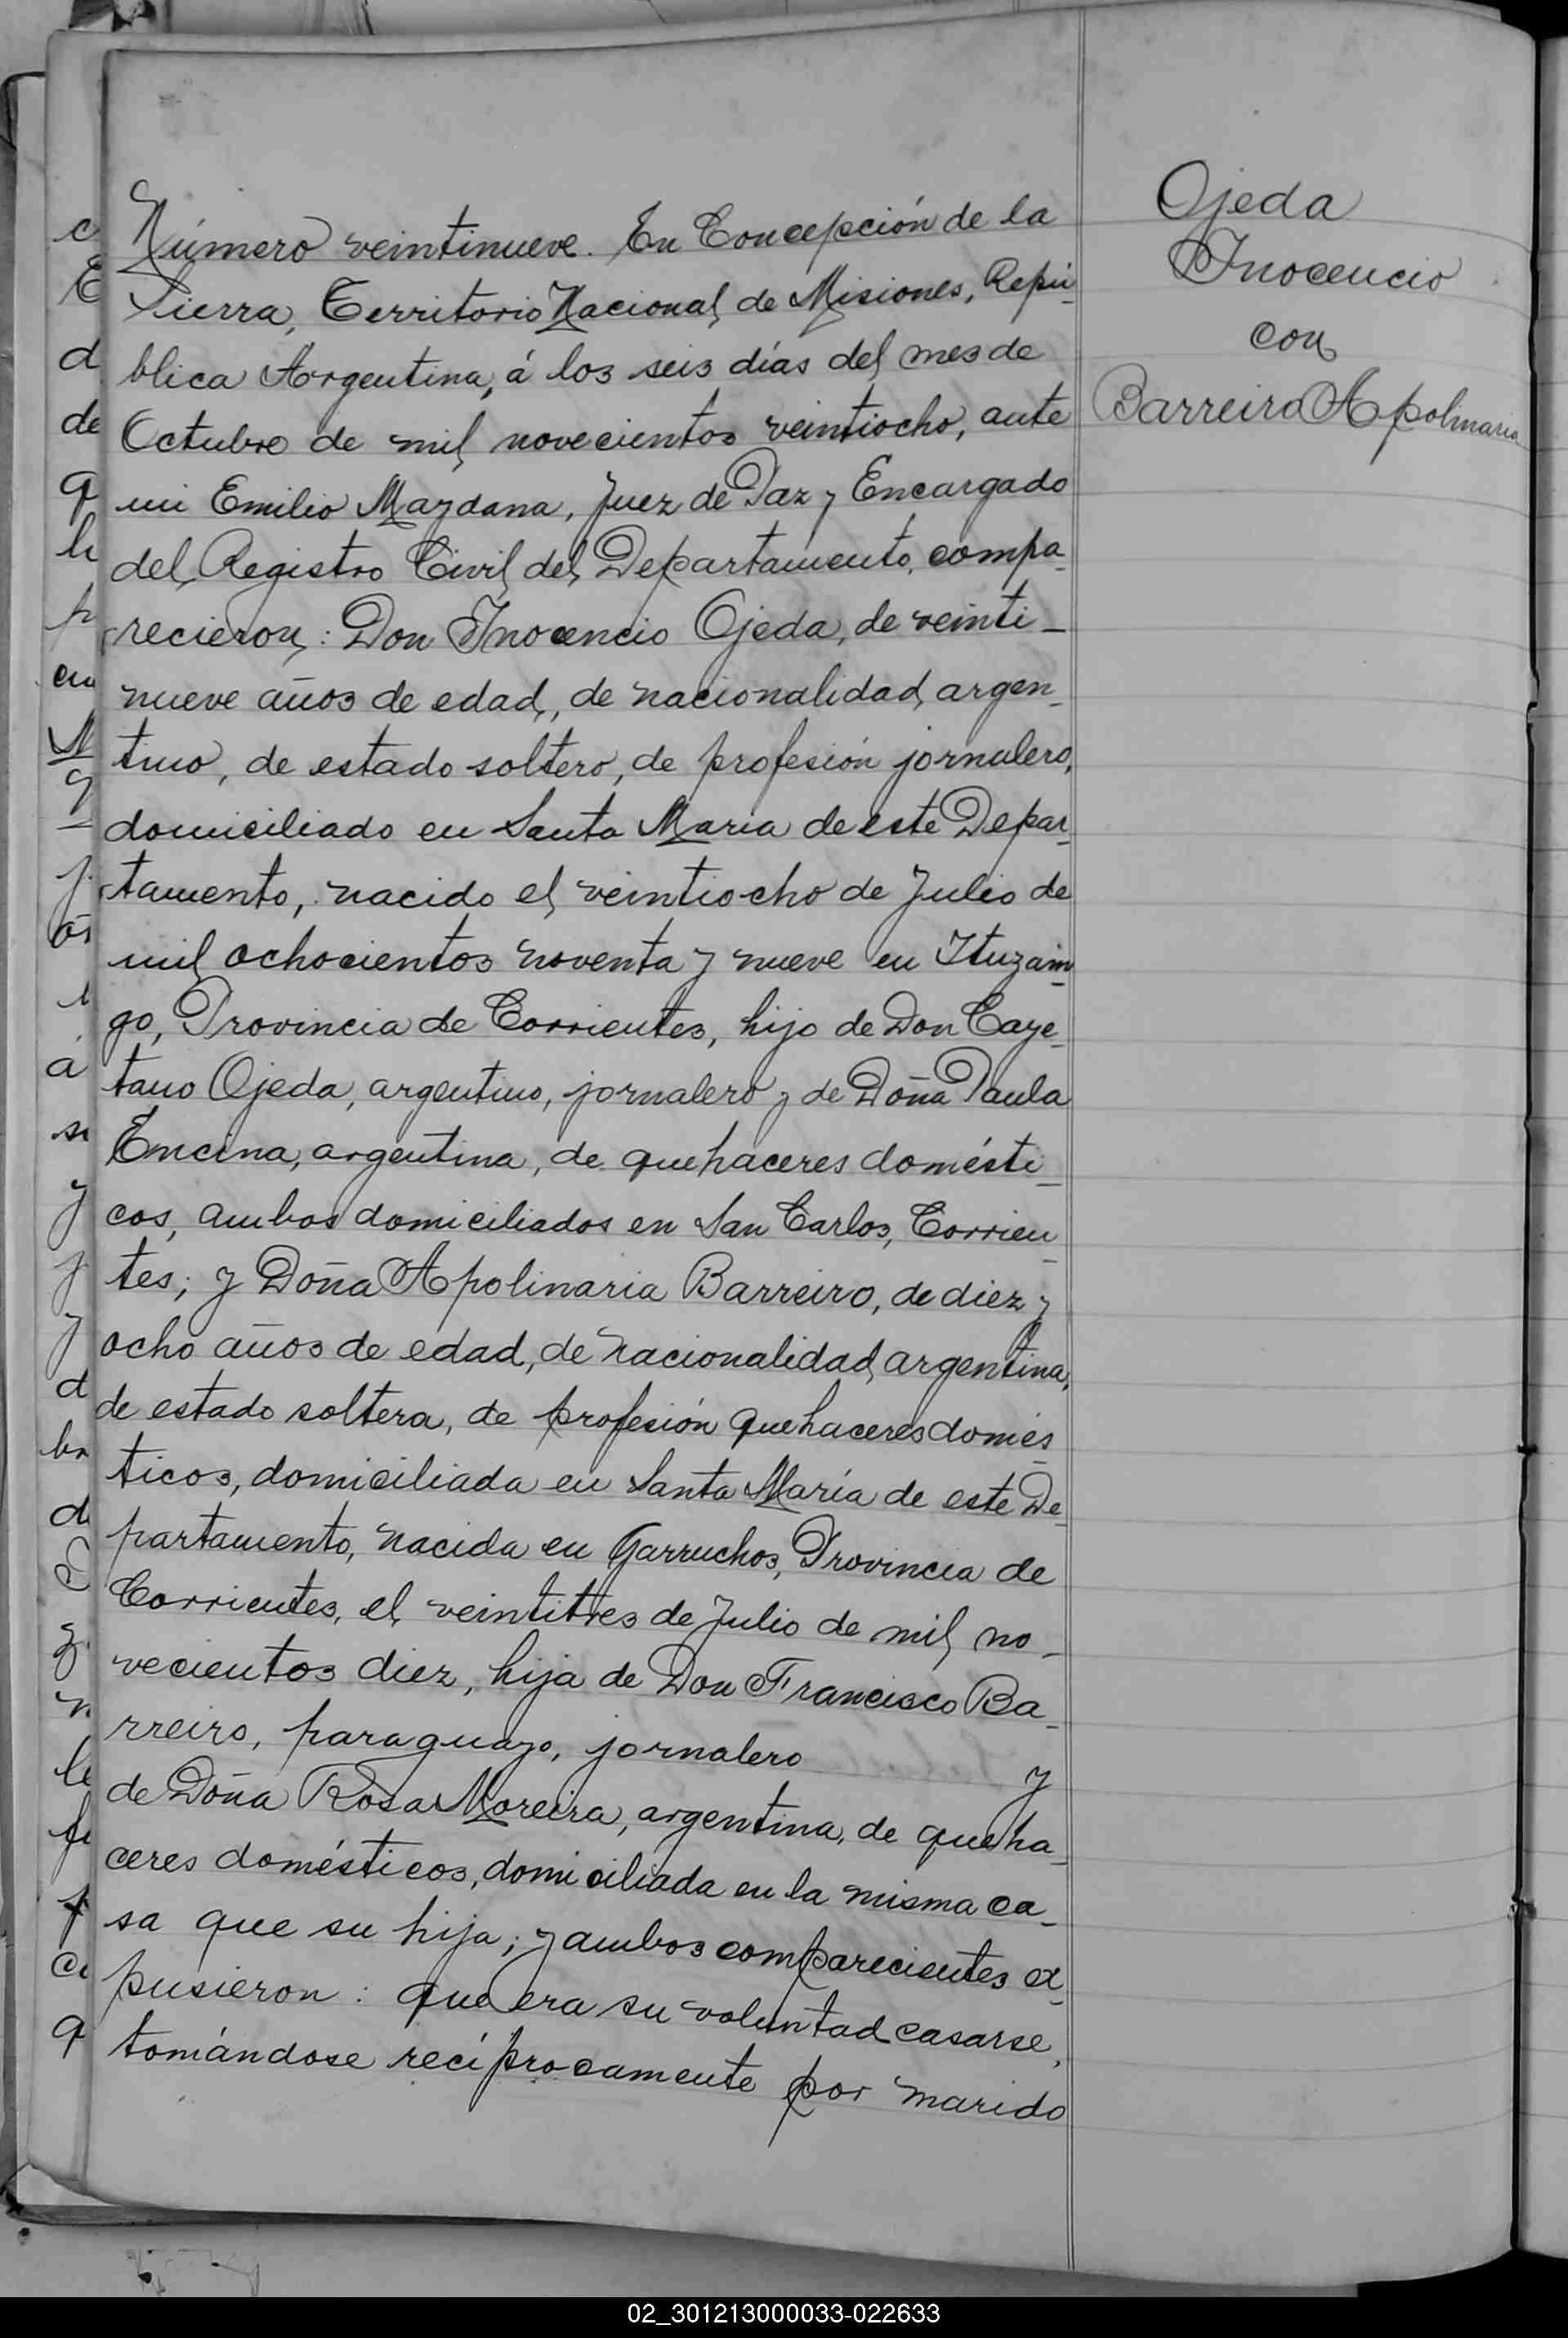 Número veintinueve. En Concepción de la
Sierra, Territorio Nacional de Misiones, Repú-
blica Argentina, á los seis días del mes de
Octubre de mil novecientos veintiocho, ante
mi Emilio Maydana, Juez de Paz y Encargado
del Registro Civil del Departamento, compa-
recieron: Don Inocencio Ojeda, de veinti-
nueve años de edad, de nacionalidad argen-
tino, de estado soltero, de profesión jornalero,
domiciliado en Santa Maria de este Depar-
tamento, nacido el veintiocho de Julio de
mil ochocientos noventa y nueve en Ituzain-
go, Provincia de Corrientes, hijo de Don Caye-
tano Ojeda, argentino, jornalero y de Doña Paula
Encina, argentina, de quehaceres domésti-
cos, ambos domiciliados en San Carlos, Corrien-
tes; y Doña Apolinaria Barreiro, de diez y
ocho años de edad, de nacionalidad argentina,
de estado soltera, de profesión quehaceres domés-
ticos, domiciliada en Santa María de este De-
partamento, nacida en Garruchos, Provincia de
Corrientes, el veintitres de Julio de mil no-
vecientos diez, hija de Don Francisco Ba-
rreiro, paraguayo, jornalero y
de Doña Rosa Moreira, argentina, de queha-
ceres domésticos, domiciliada en la misma ca-
sa que su hija; y ambos comparecientes ex-
pusieron: que era su voluntad casarse,
tomándose recíprocamente por marido
Ojeda
Inocencio
con
Barreiro Apolinaria
02_301213000033-022633